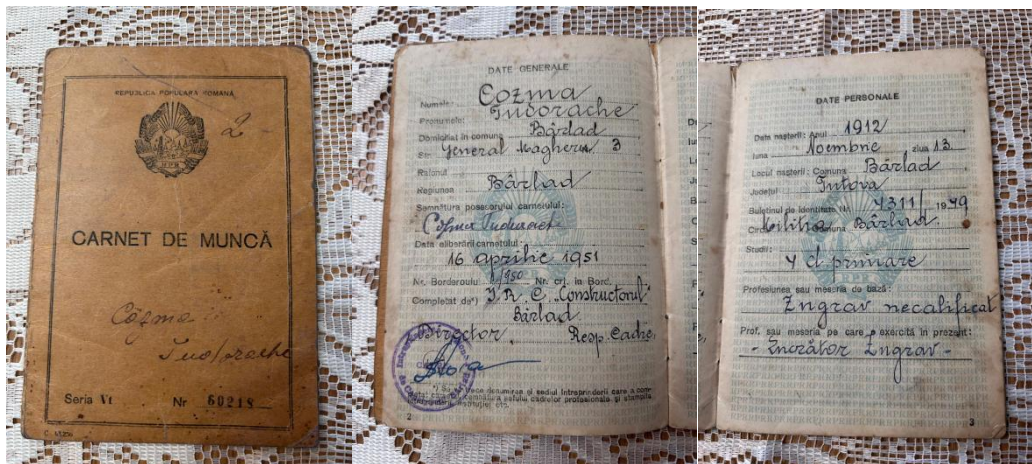 REPUBLICA POPULARĂ ROMÂNĂ
RPR
2
CARNET DE MUNCĂ
Cozma
Tudorache
Seria Vt Nr 60218
DATE GENERALE
Numele: Cozma
Prenumele: Tudorache
Domiciliat în comuna Bârlad
Str. General Magheru 3
Raionul
Regiunea Bârlad
Semnătura posesorului carnetului:
Cozma Tudorache
Data eliberării carnetului:
16 Aprilie 1951
Nr. Borderoului 1/950 Nr. crt. în Bord.
Completat de*) I.R.C. „Constructorul"
Bârlad
Director, Resp. Cadre,
denumirea și sediul întreprinderii care a com-
semnătura șefului cadrelor profesionale și ștampila
instituției etc.
2
DATE PERSONALE
Data nașterii: Anul 1912
luna Noembrie ziua 13
Locul nașterii: Comuna Bârlad
Județul Tutova
Buletinul de identitate Nr. 4311/1949
Miliția Bârlad
Studii:
4 cl primare
Profesiunea sau meseria de bază:
Zugrav necalificat
Prof. sau meseria pe care o exercită în prezent:
- Zugrav -
3